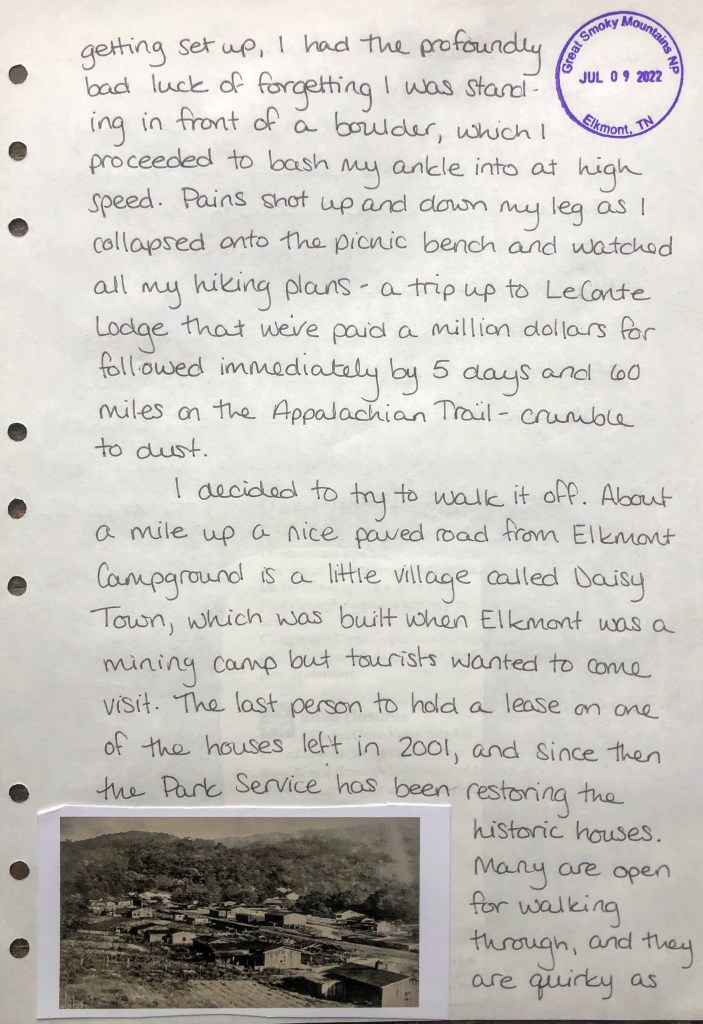 getting set up, I had the profoundly
bad luck of forgetting I was stand-
ing in front of a boulder, which I
proceeded to bash my ankle into at high
speed. Pains shot up and down my leg as I
collapsed onto the picnic bench and watched
all my hiking plans - a trip up to LeConte
Lodge that we've paid a million dollars for
followed immediately by 5 days and 60
miles on the Appalachian Trail - crumble
to dust.
I decided to try to walk it off. About
a mile up a nice paved road from Elkmont
Campground is a little village called Daisy
Town, which was built when Elkmont was a
mining camp but tourists wanted to come
visit. The last person to hold a lease on one
of the houses left in 2001, and since then
the Park Service has been restoring the
historic houses.
Many are open
for walking
through, and they
are quirky as
Great Smoky Mountains NP
JUL 09 2022
Elkmont, TN